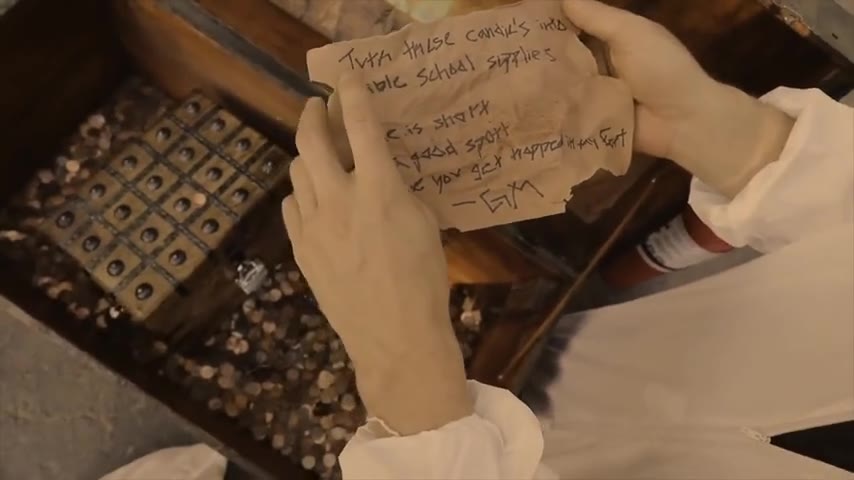 Turn these candie's into
ible school supplies
e is short
good sport
e you get trapped in my Fort
-GM